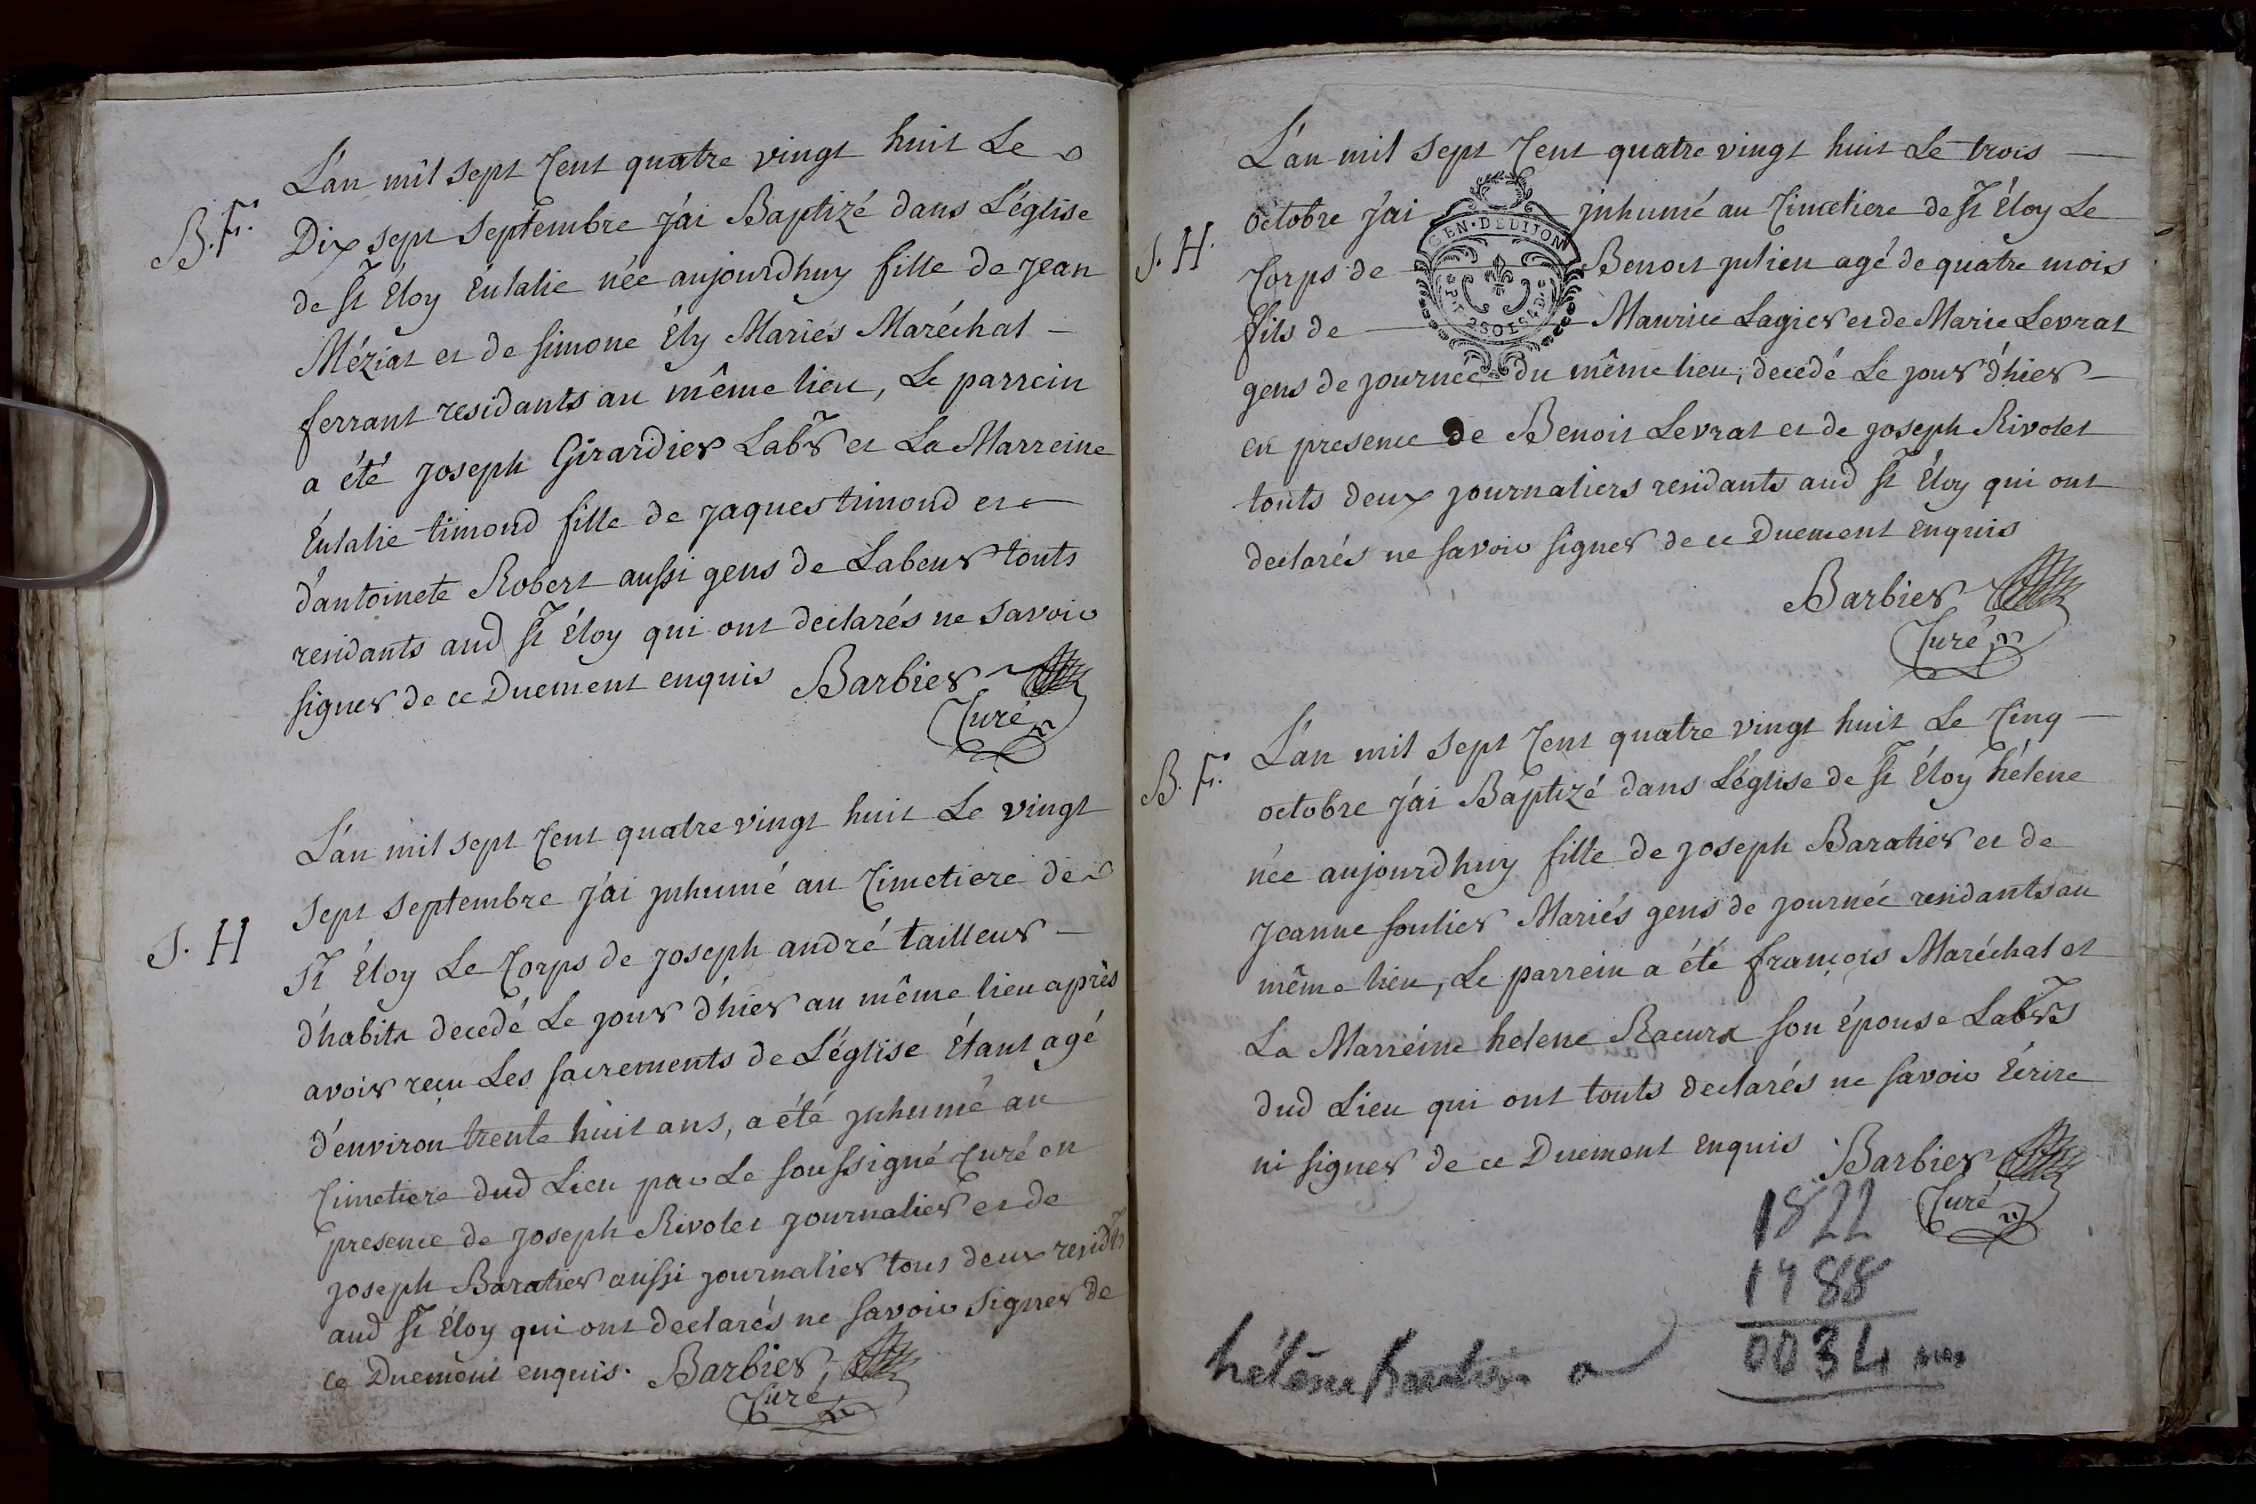 L'an mil sept Cent quatre vingt huit Le
B. F.
Dix sept Septembre j'ai Baptizé dans L'église
de St Éloy Eulalie née aujourd'huy fille de jean
Méziat et de simone Ély Mariés Maréchal
ferrant residants au même lieu, Le parrein
a été joseph Girardier Labr et La Marreine
Eulalie timond fille de jaques timond et
d'antoinete Robert aussi gens de Labeur touts
residants aud St Éloy qui ont declarés ne savoir
signer de ce Duement enquis Barbier
Curé
L'an mil sept Cent quatre vingt huit Le vingt
sept septembre j'ai jnhumé au Cimetiere de
S. H
St Éloy Le Corps de joseph andré tailleur
d'habits decedé Le jour d'hier au même lieu après
avoir reçu Les sacrements de L'église Étant agé
d'environ trente huit ans, a été jnhumé au
Cimetiere dud Lieu par Le soussigné Curé en
presence de joseph Rivolet journalier et de
joseph Baratier aussi journalier tous deux residts
aud St Éloy qui ont declarés ne savoir signer de
ce Duement enquis. Barbier
Curé
L'an mil sept Cent quatre vingt huit Le trois
octobre j'ai jnhumé au Cimetiere de St Éloy Le
S. H.
GEN. DE DIJON
Corps de Benoit julien agé de quatre mois
fils de Maurice Lagier et de Marie Levrat
gens de journée du même lieu, decedé Le jour d'hier
en presence de Benoit Levrat et de joseph Rivolet
touts deux journaliers residants aud St Éloy qui ont
declarés ne savoir signer de ce Duement enquis
Barbier
Curé
L'an mil sept Cent quatre vingt huit Le Cinq
B. F.
octobre j'ai Baptizé dans L'église de St Éloy hélene
née aujourd'huy fille de joseph Baratier et de
jeanne soulier Mariés gens de journée residants au
même lieu, Le parrein a été françois Maréchal et
La Marreine helene son épouse Labrs
dud Lieu qui ont touts declarés ne savoir Écrire
ni signer de ce Duement enquis Barbier
Curé
1822
1788
0034 ans
hélène